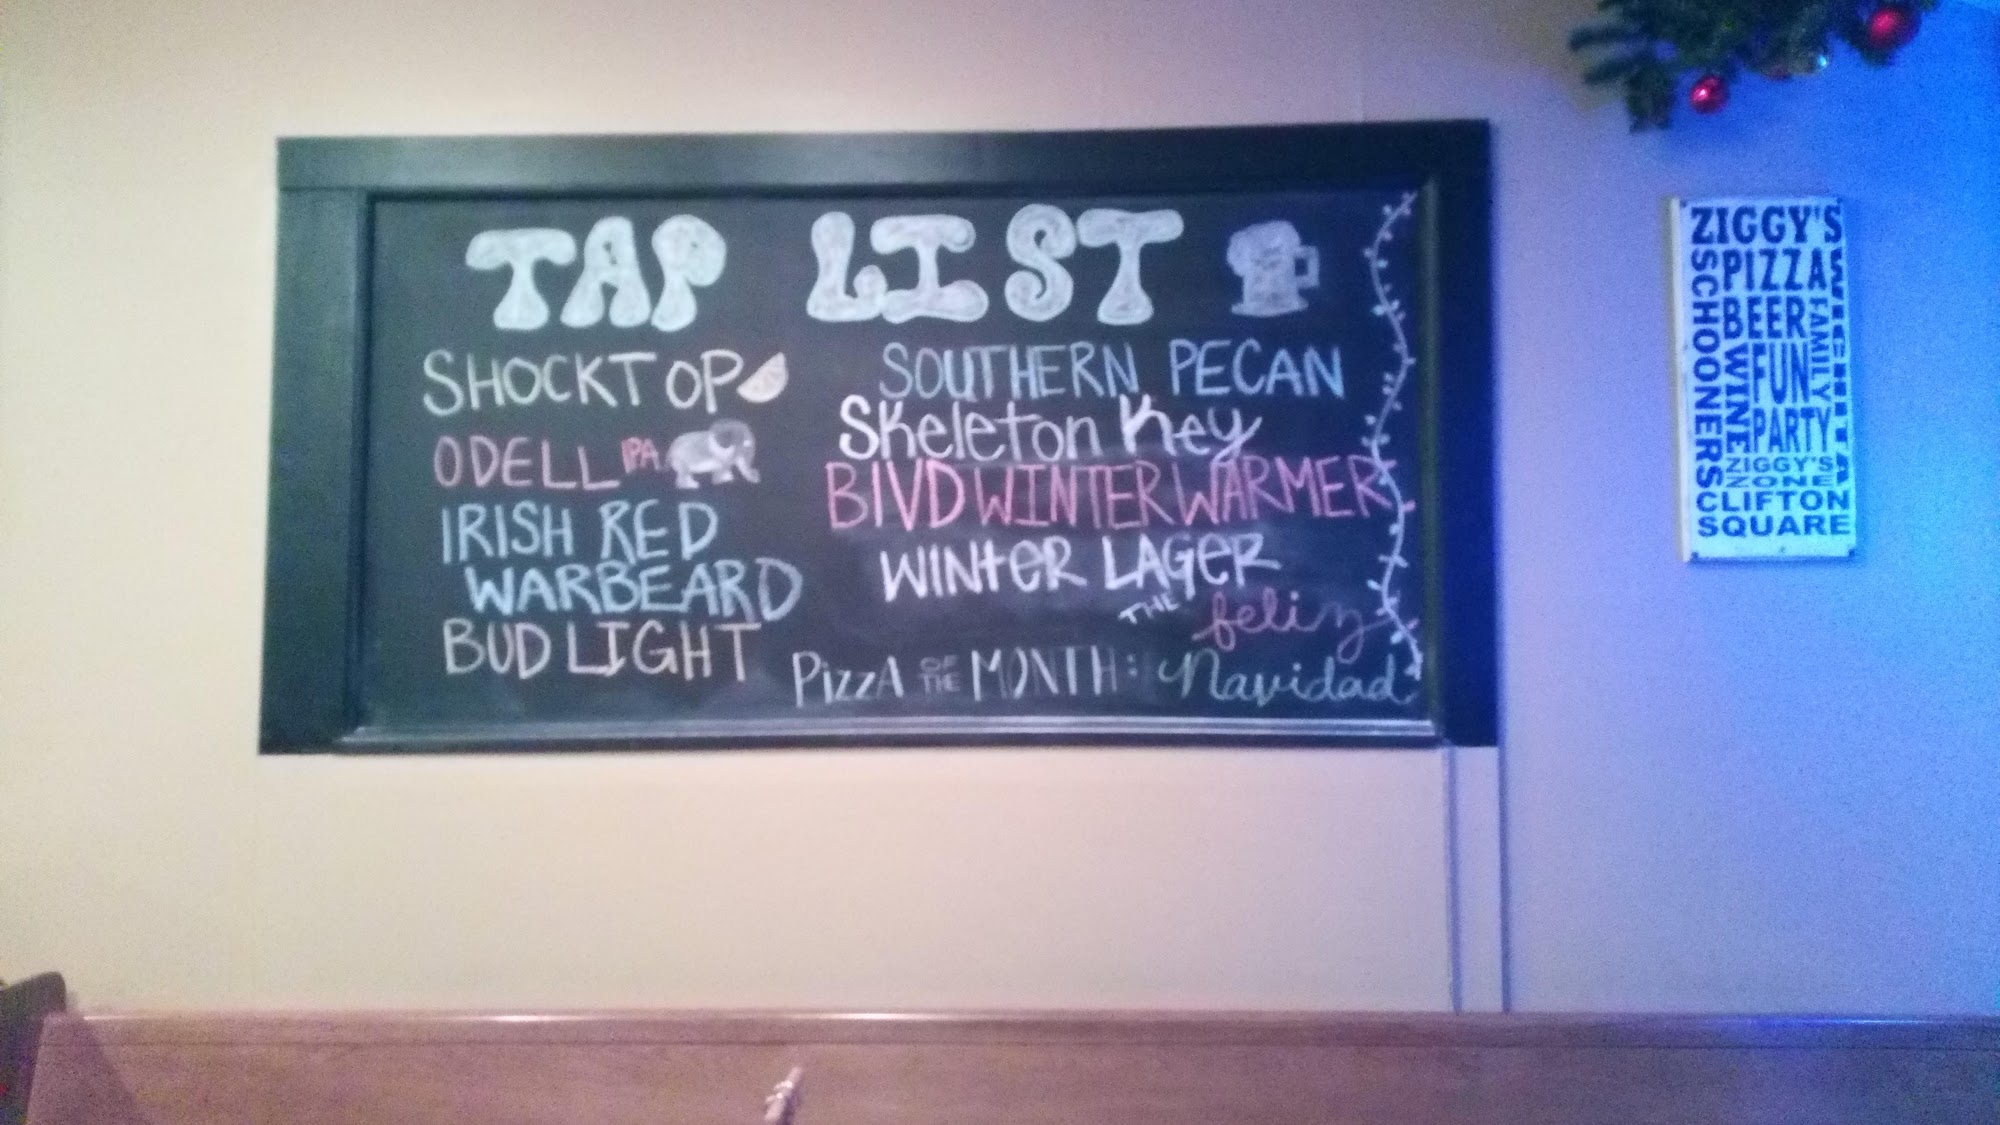 TAP LIST
SHOCKTOP
ODELL IPA
IRISH RED
WARBEARD
BUD LIGHT
SOUTHERN PECAN
Skeleton Key
BLVD WINTER WARMER
WINTER LAGER
PIZZA OF THE MONTH: THE feliz Navidad
ZIGGY'S
PIZZA
BEER
FUN
PARTY
ZIGGY'S
ZONE
CLIFTON
SQUARE
SCHOONERS
WINE
FAMILY
WICHITA